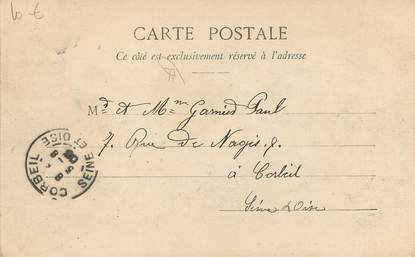 10 €
CARTE POSTALE
Ce côté est exclusivement réservé à l'adresse
Md et Mm Garnier Paul
7, Rue de
à Corbeil
Seine & Oise
CORBEIL
SEINE ET OISE